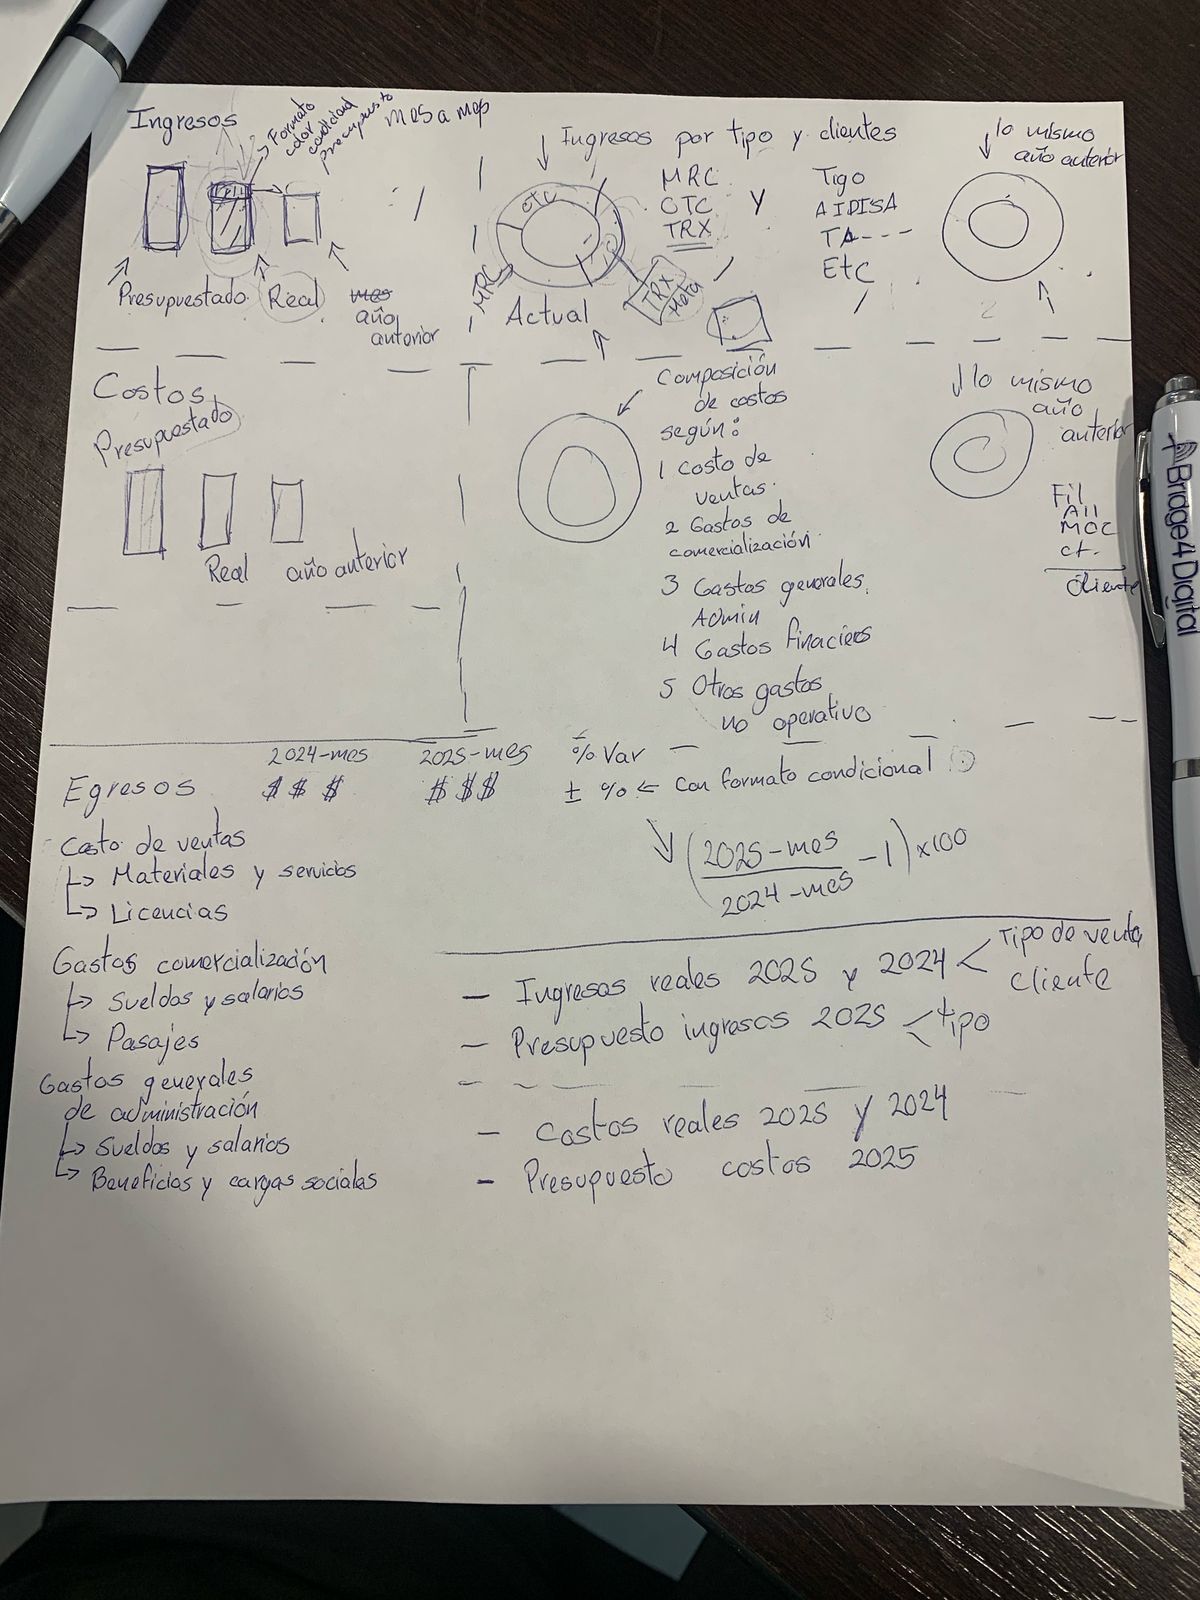 Ingresos
Formato
color
condicional
presupuesto
mes a mes
Presupuestado
Real
mes
año
anterior
Ingresos por tipo y clientes
OTC
MRC
TRX
Meta
Actual
MRC
OTC
TRX
y
Tigo
AIDISA
TA---
Etc
lo mismo
año anterior
Costos
Presupuestado
Real
año anterior
Composición
de costos
según:
1 Costo de
ventas
2 Gastos de
comercialización
3 Gastos generales
Admin
4 Gastos finacieros
5 Otros gastos
no operativo
lo mismo
año
anterior
Fil
All
MOC
ct.
Cliente
Bridge4Digital
2024-mes 2025-mes % Var
Egresos $ $ $ $ $ $ ± % ← Con formato condicional
(2025-mes
2024-mes
-1) x100
Costo de ventas
↳ Materiales y servicios
↳ Licencias
Gastos comercialización
↳ Sueldos y salarios
↳ Pasajes
Gastos generales
de administración
↳ Sueldos y salarios
↳ Beneficios y cargas sociales
- Ingresos reales 2025 y 2024 < Tipo de venta
Cliente
- Presupuesto ingresos 2025 < tipo
- Costos reales 2025 y 2024
- Presupuesto costos 2025